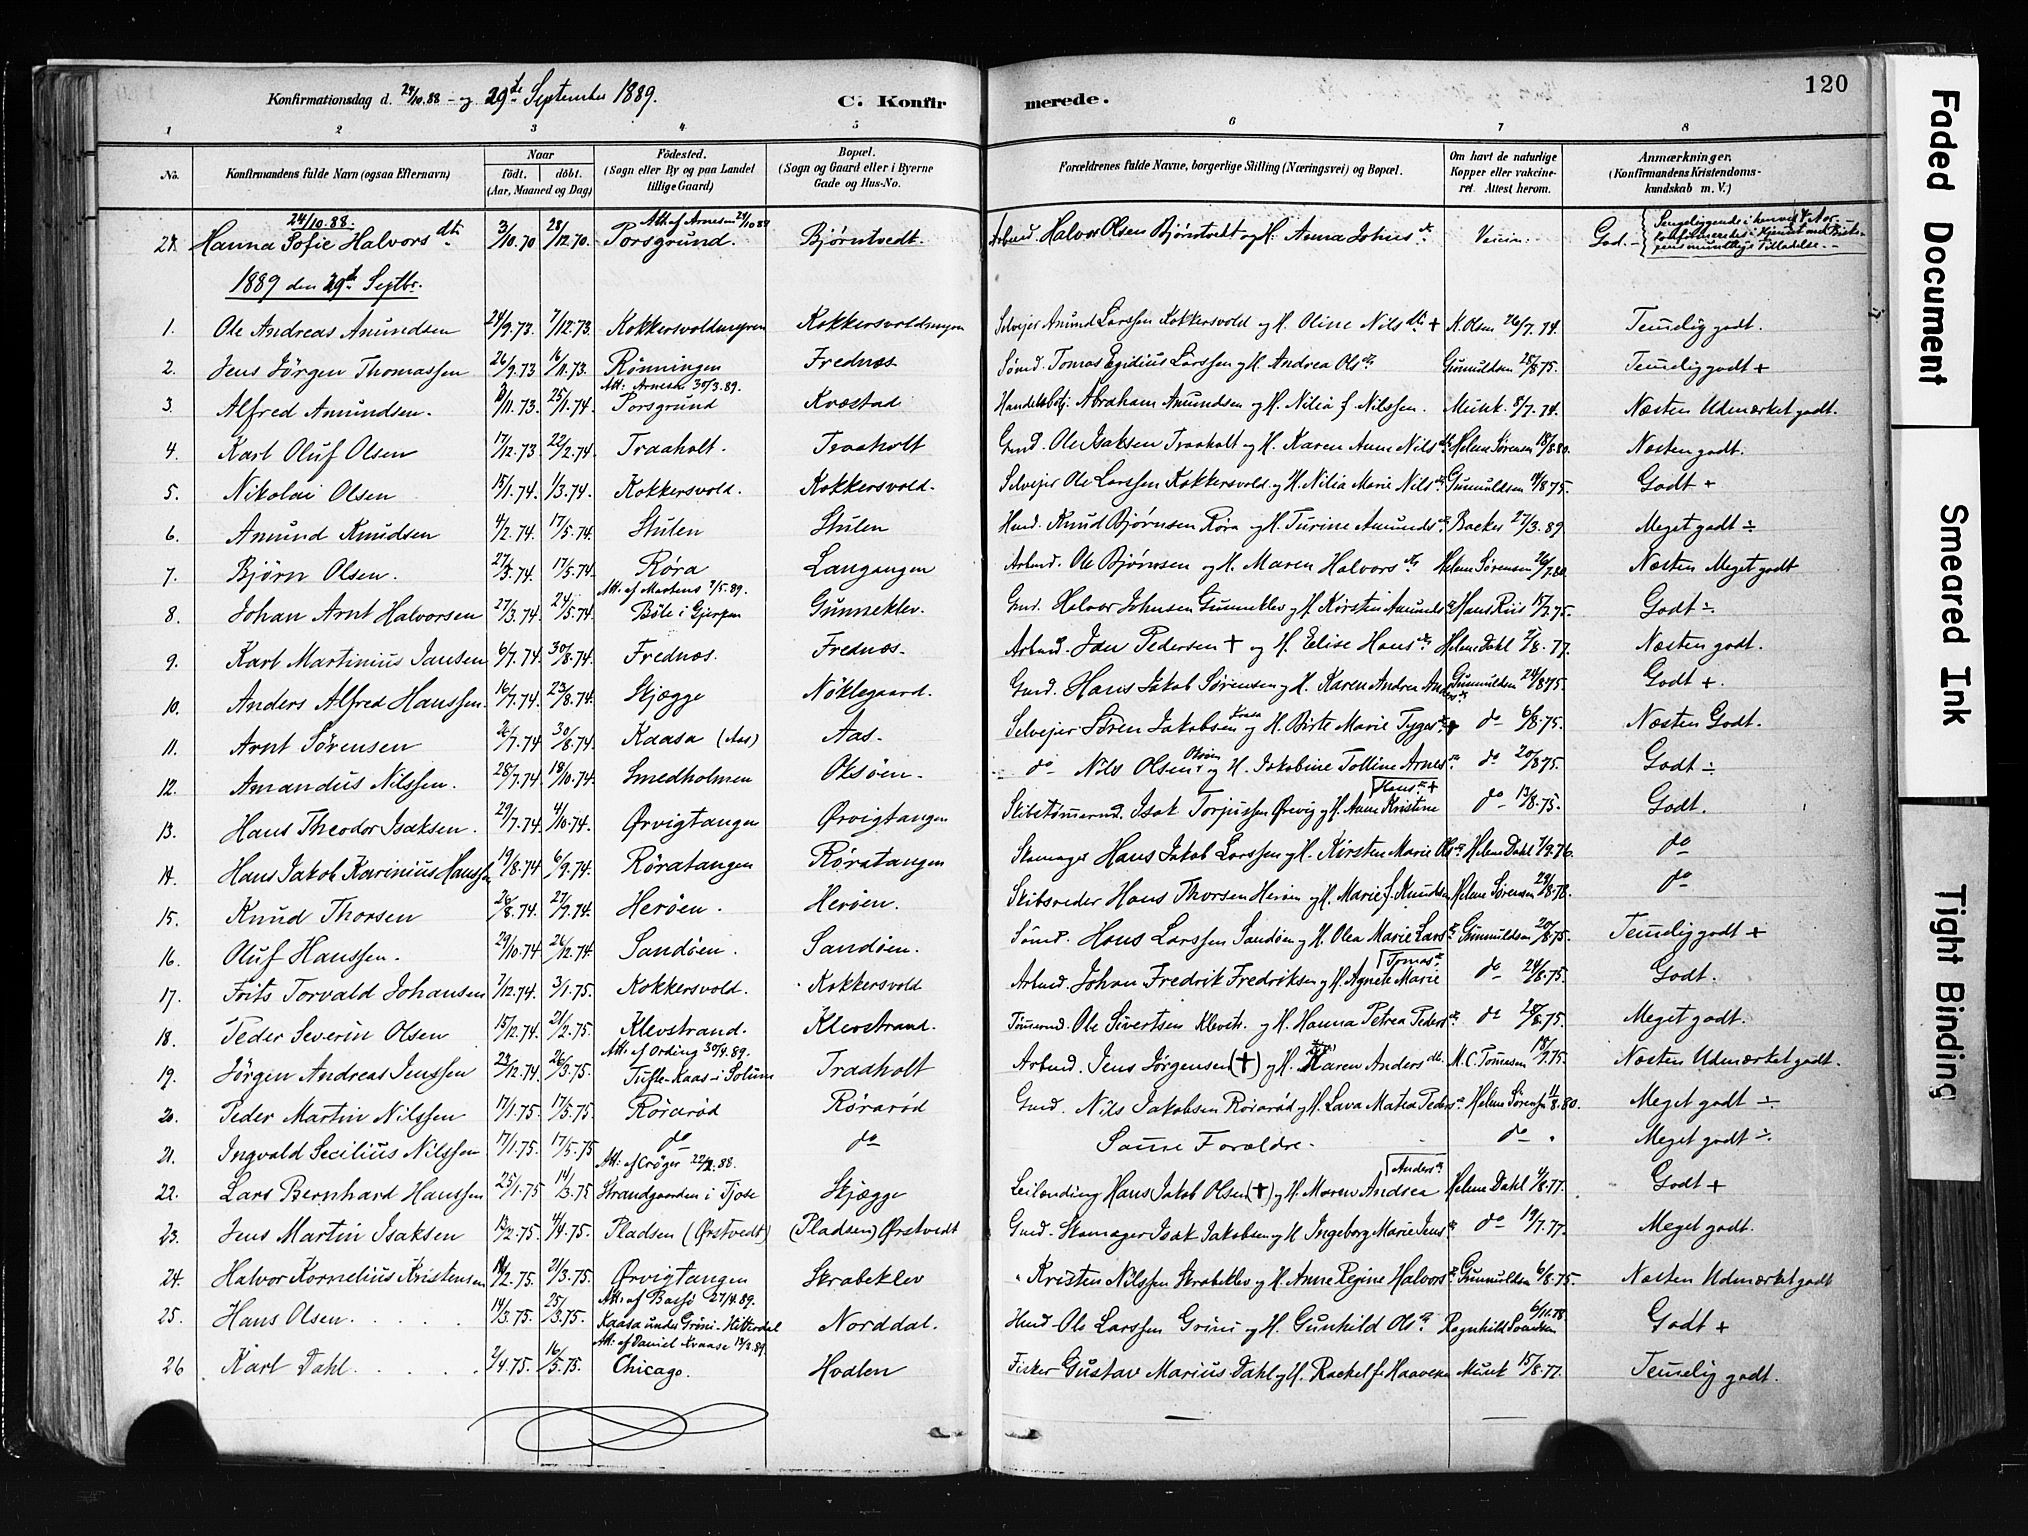 120
Konfirmationsdag d. 24/10.88 - og 29de September 1889.
C. Konfirmerede.
1 2 3 4 5 6 7 8
No.
Konfirmandens fulde Navn (ogsaa Efternavn)
Naar
født. døbt.
(Aar, Maaned og Dag)
Fødested.
(Sogn eller By og paa Landet
tillige Gaard)
Bopæl.
(Sogn og Gaard eller i Byerne
Gade og Hus-No.
Forældrenes fulde Navne, borgerlige Stilling (Næringsvei) og Bopæl.
Om havt de naturlige
Kopper eller vakcine-
ret. Attest herom.
Anmærkninger.
(Konfirmandens Kristendoms-
kundskab m. V.)
24/10.88. Att. af Arnesen 24/10 88
Hanna Sofie Halvorsdtr 3/10.70 28/12.70. Porsgrund. Bjørntvedt. Arbmd. Halvor Olsen Bjørntvedt og H. Anna Johnsdtr God.
1889 den 29de Septbr.
1. Ole Andreas Amundsen 24/9.73. 7/12.73. Kokkersvoldmyren Kokkersvoldmyren Selvejer Amund Larssen Kokkersvold og H. Oline Nilsdtr + K. Olsen 26/7.74. Temelig godt.
2. Jens Jørgen Thomassen 26/9.73 16/11.73. Rønningen Frednæs Sømd. Tomas Egidius Larssen og H. Andrea Olsdtr Gunnuldsen 25/8 75. Temelig godt +
Att. Arnesen 30/3.89.
3. Alfred Amundsen. 3/11.73. 25/1.74. Porsgrund Kvestad Handelsbetj. Abraham Amundsen og H. Nilia f. Nilssen. Munk. 8/7.74. Næsten Udmærket godt.
4. Karl Oluf Olsen 17/12.73 22/2.74. Traaholt. Traaholt Gmd. Ole Isaksen Traaholt og H. Karen Anne Nilsdtr Helene Sørensen 18/8.80. Næsten godt.
5. Nikolai Olsen 15/1.74. 1/3.74. Kokkersvold. Kokkersvold. Selvejer Ole Larssen Kokkersvold. og H. Nilia Marie Nilsdtr Gunnuldsen 19/8 75. Godt +
6. Amund Knudsen 4/2.74. 17/5.74. Stulen Stulen Hmd. Knud Bjørnsen Røra og H. Turine Amundsdtr Backer 27/3.89 Meget godt ÷
7. Bjørn Olsen. 27/3.74. 17/5.74. Røra Langangen Arbmd. Ole Bjørnsen og H. Maren Halvorsdtr Helene Sørensen 26/7.80. Næsten Meget godt
Att. af Martens 7/5.89.
8. Johan Arnt Halvorsen 27/3.74. 24/5.74. Bøle i Gjerpen Gunneklev. Gmd. Halvor Johnsen Gunneklev og H. Kirsten Amundsdtr Hans Riis 15/7.75. Godt ÷
9. Karl Martinius Jansen 6/7.74. 30/8.74. Frednæs. Frednæs. Arbmd. Jan Pedersen + og H. Elise Hansdtr Helene Dahl 2/8.77. Næsten godt.
10. Anders Alfred Hanssen. 16/7.74. 23/8.74. Skjægge Nøklegaard. Gmd. Hans Jakob Sørensen og H. Karen Andrea Andersdtr Gunnuldsen 24/8 75. Godt +.
11. Arnt Sørensen 7.74. 30/8.74. Kaasa (Aas) Aas. Selvejer Søren Jakobsen og H. Birte Marie Tygesdtr do 6/8.75. Næsten Godt.
12. Amandus Nilssen. 28/7.74. 18/10.74. Smedholmen Oksøen. do Nils Olsen og H. Jakobine Tolline Arnesdtr do 20/8 75. Godt ÷
13. Hans Theodor Isaksen. 29/7.74. 4/10.74. Ørvigtangen Ørvigtangen Skibstømmermd. Isak Torjussen Ørvig og H. Anne Kristine Hansdtr + do 13/8.75. Godt.
14. Hans Jakob Karinius Hanssen 19/8.74 6/9.74. Røratangen Røratangen Skomager Hans Jakob Larssen og H. Kirsten Marie Olsdtr Helene Dahl 7/9.76. do
15. Knud Thorsen 26/8.74. 27/9.74. Herøen. Herøen. Skibsreder Hans Thorsen Herøen og H. Marie f. Knudsen Helene Sørensen 23/8.78. do
16. Oluf Hanssen. 29/10.74 26/12.74. Sandøen. Sandøen. Sømd. Hans Larssen Sandøen og H. Olea Marie Larsdtr Gunnuldsen 20/8.75. Temelig godt +
17. Frits Torvald Johansen 7/12.74. 3/1.75. Kokkersvold. Kokkersvold Arbmd. Johan Fredrik Fredriksen og H. Agnete Marie Tomasdtr do 24/8.75. Godt.
18. Peder Severin Olsen 15/12.74. 21/2.75. Klevstrand. Klevstrand. Tømmermd. Ole Sivertsen Klevstr. og H. Hanna Petrea Pedersdtr do 20/8.75. Meget godt.
Att. af Ording 30/4.89.
19. Jørgen Andreas Jenssen 23/12.74. 26/3.75. Tufte-Kaas-i Solum Traaholt Arbmd. Jens Jørgensen (+) og H. Karen Andersdtr. M.C. Tomesen 18/7.75. Næsten Udmærket godt.
20. Peder Martin Nilssen 17/1.75. 17/5.75 Rørarød Rørarød Gmd. Nils Jakobsen Rørarød og H. Lava Matea Pedersdtr Helene Sørensen 11/8.80. Meget godt ÷
21. Ingvald Secilius Nilssen 17/1.75. 17/5.75 do do Samme Forældre. do Meget godt ÷
Att. af Crøger 22/2.88.
22. Lars Bernhard Hanssen 25/1.75 14/3.75 Strandgaarden i Tjose Skjægge Leilænding Hans Jakob Olsen (+) og H. Maren Andrea Andersdtr Helene Dahl 4/8.77. Godt +
23. Jens Martin Isaksen 13/2.75. 4/4.75. Pladsen (Ørstvedt) (Pladsen) Ørstvedt Gmd. Skomager Isak Jakobsen og H Ingeborg Marie Jensdtr do 19/7.77. Meget godt.
24. Halvor Kornelius Kristensen 14/2.75. 21/3.75. Ørvigtangen Skrabeklev " Kristen Nilssen Skrabeklev og H. Anne Regine Halvorsdtr Gunnuldsen 6/8.75. Næsten Udmærket godt
Att. af Bassø 27/4.89.
25. Hans Olsen. 14/3.75. 25/3.75. Kaasa under Grini - Hitterdal Norddal. Hmd. Ole Larssen Grini og H. Gunhild Olsdtr Ragnhild Svendsen 6/11.78 Godt +
Att. af Daniel Kvaase 13/8.89.
26 Karl Dahl. 2/4.75. 16/5.75. Chicago. Hvalen Fisker Gustav Marius Dahl og H. Rachel f. Haavesen Munk 15/8.77. Temelig godt.
Faded Document
Smeared Ink
Tight Binding